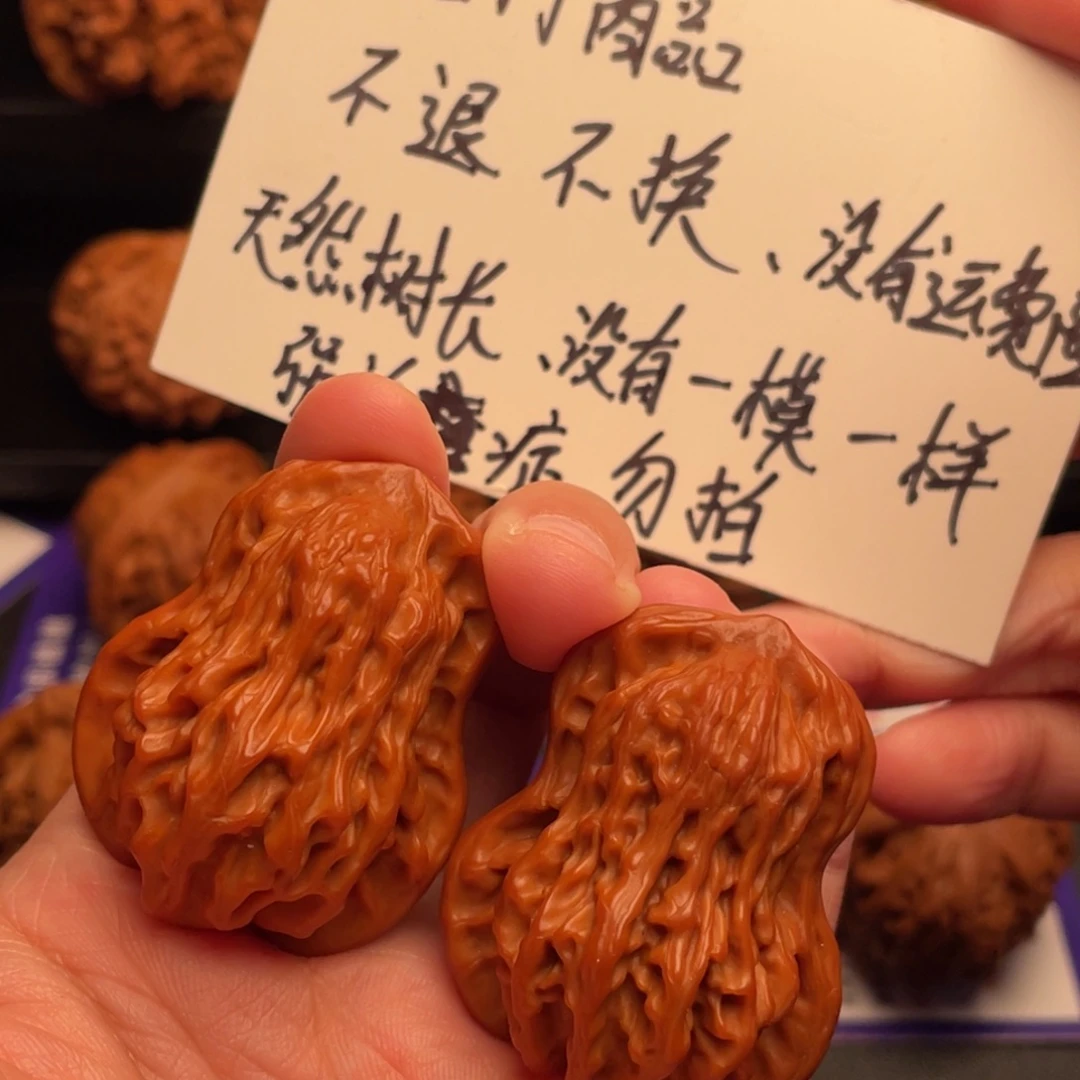 商品
不退不换、没有运费
天然树长、没有一模一样
强 症 勿拍